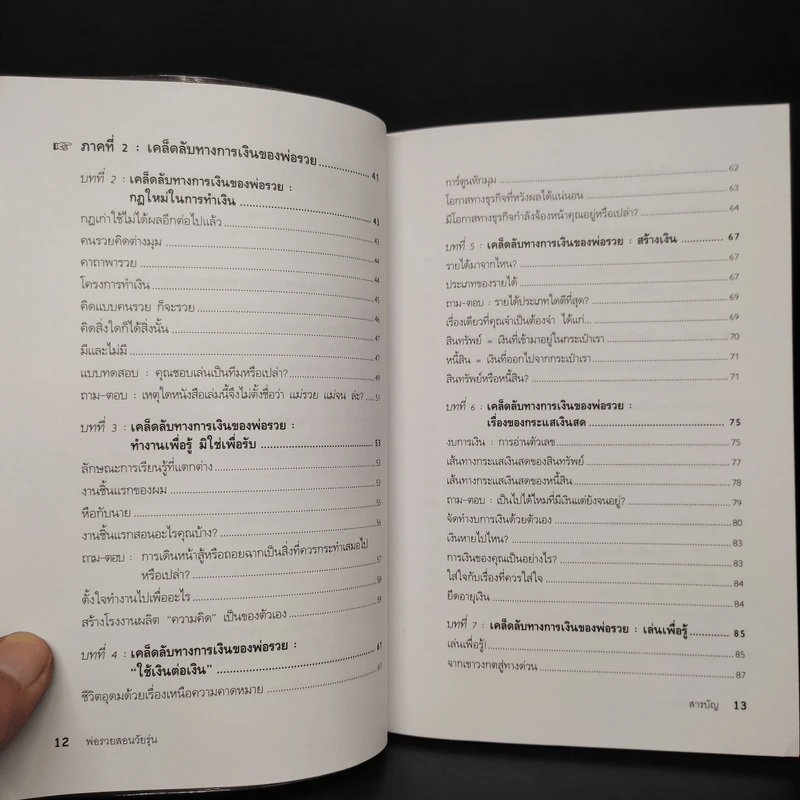 ☞ ภาคที่ 2 : เคล็ดลับทางการเงินของพ่อรวย ........ 41
บทที่ 2 : เคล็ดลับทางการเงินของพ่อรวย :
กฎใหม่ในการทำเงิน ........ 43
กฎเก่าใช้ไม่ได้ผลอีกต่อไปแล้ว ........ 43
คนรวยคิดต่างมุม ........ 43
คาถาพารวย ........ 44
โครงการทำเงิน ........ 44
คิดแบบคนรวย ก็จะรวย ........ 45
คิดสิ่งใดก็ได้สิ่งนั้น ........ 47
มีและไม่มี ........ 47
แบบทดสอบ : คุณชอบเล่นเป็นทีมหรือเปล่า? ........ 49
ถาม-ตอบ : เหตุใดหนังสือเล่มนี้จึงไม่ตั้งชื่อว่า แม่รวย แม่จน ล่ะ? ..... 51
บทที่ 3 : เคล็ดลับทางการเงินของพ่อรวย :
ทำงานเพื่อรู้ มิใช่เพื่อรับ ........ 53
ลักษณะการเรียนรู้ที่แตกต่าง ........ 53
งานชิ้นแรกของผม ........ 55
หือกับนาย ........ 55
งานชิ้นแรกสอนอะไรคุณบ้าง? ........ 56
ถาม-ตอบ : การเดินหน้าสู้หรือถอยฉากเป็นสิ่งที่ควรกระทำเสมอไป
หรือเปล่า? ........ 57
ตั้งใจทำงานไปเพื่ออะไร ........ 58
สร้างโรงงานผลิต “ความคิด” เป็นของตัวเอง ........ 59
บทที่ 4 : เคล็ดลับทางการเงินของพ่อรวย :
“ใช้เงินต่อเงิน” ........ 61
ชีวิตอุดมด้วยเรื่องเหนือความคาดหมาย ........ 61
12 พ่อรวยสอนวัยรุ่น
การ์ตูนหักมุม ........ 62
โอกาสทางธุรกิจที่หวังผลได้แน่นอน ........ 63
มีโอกาสทางธุรกิจกำลังจ้องหน้าคุณอยู่หรือเปล่า? ........ 64
บทที่ 5 : เคล็ดลับทางการเงินของพ่อรวย : สร้างเงิน ........ 67
รายได้มาจากไหน? ........ 67
ประเภทของรายได้ ........ 67
ถาม-ตอบ : รายได้ประเภทใดดีที่สุด? ........ 69
เรื่องเดียวที่คุณจำเป็นต้องจำ ได้แก่... ........ 69
สินทรัพย์ = เงินที่เข้ามาอยู่ในกระเป๋าเรา ........ 70
หนี้สิน = เงินที่ออกไปจากกระเป๋าเรา ........ 71
สินทรัพย์หรือหนี้สิน? ........ 71
บทที่ 6 : เคล็ดลับทางการเงินของพ่อรวย :
เรื่องของกระแสเงินสด ........ 75
งบการเงิน : การอ่านตัวเลข ........ 75
เส้นทางกระแสเงินสดของสินทรัพย์ ........ 77
เส้นทางกระแสเงินสดของหนี้สิน ........ 78
ถาม-ตอบ : เป็นไปได้ไหมที่มีเงินแต่ยังจนอยู่? ........ 79
จัดทำงบการเงินด้วยตัวเอง ........ 80
เงินหายไปไหน? ........ 83
การเงินของคุณเป็นอย่างไร? ........ 83
ใส่ใจกับเรื่องที่ควรใส่ใจ ........ 84
ยืดอายุเงิน ........ 84
บทที่ 7 : เคล็ดลับทางการเงินของพ่อรวย : เล่นเพื่อรู้ ........ 85
เล่นเพื่อรู้! ........ 85
จากเขาวงกตสู่ทางด่วน ........ 87
สารบัญ 13